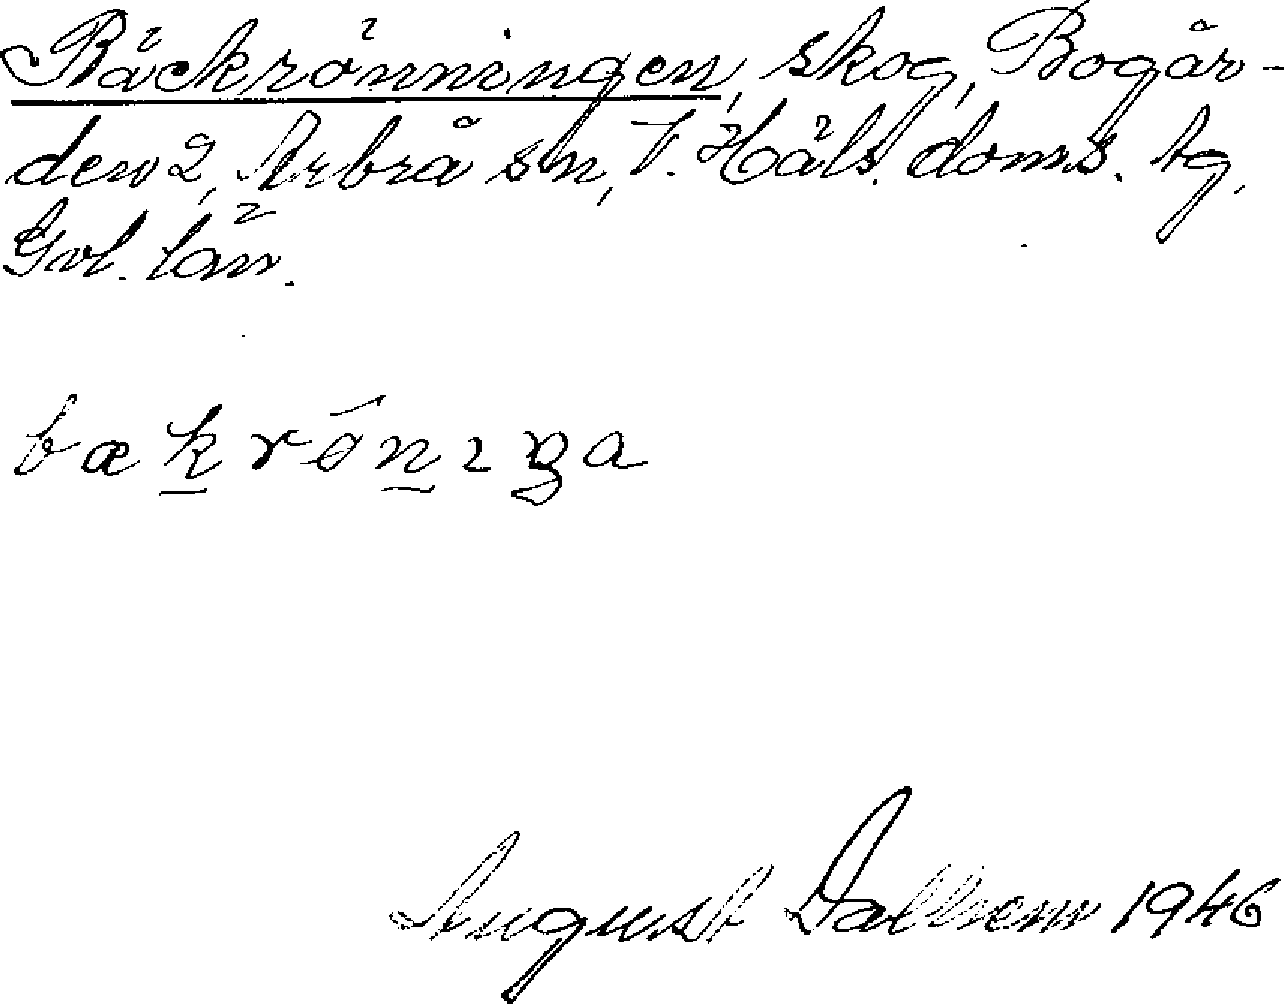 Bäckrönningen, skog, Bogår-
den 2, Arbrå sn, V. Häls. doms. tg,
Gvl. län.
bækrönıŋa
August Dalhem 1946